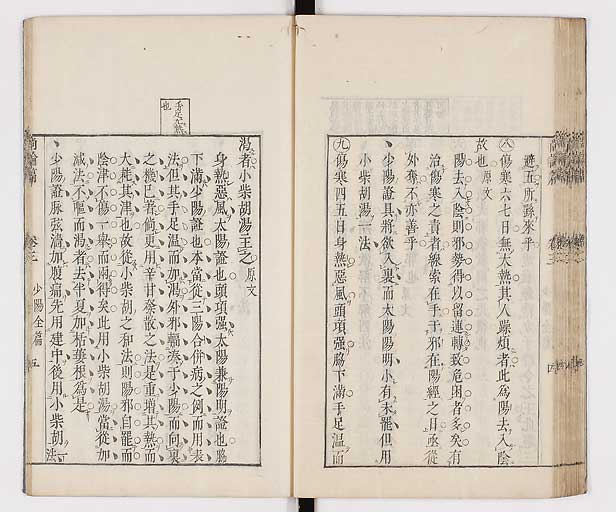 避五所疑來乎
㊇傷寒六七日無大熱其人躁煩者此為陽去入陰
故也原文
陽去入陰則邪勢得以留連轉致危困者多矣有
治傷寒之責者線索在手于邪在陽經之日亟從
外奪不亦善乎
少陽證具將欲入裏而太陽陽明小有未罷但用
小柴胡湯一法
㊈傷寒四五日身熱惡風頭項强脇下滿手足温而
渴者小柴胡湯主之原文
身熱惡風太陽證也頭項强太陽兼陽明證也脇
下滿少陽證也本當從三陽合併病之例而用表
法但其手足温而加渴外邪輻湊于少陽而向裏
之機已著倘更用辛甘發散之法是重增其熱而
大耗其津也故從小柴胡之和法則陽邪自罷而
陰津不傷一舉而兩得矣此用小柴胡湯當從加
減法不嘔而渴者去半夏加栝蔞根為是
少陽證脉弦濇加腹痛先用建中後用小柴胡法
少陽全篇
五